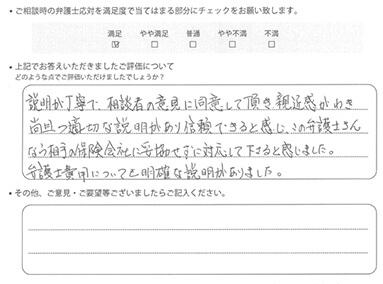 ・ご相談時の弁護士応対を満足度で当てはまる部分にチェックをお願い致します。
満足 やや満足 普通 やや不満 不満
☑ □ □ □ □
・上記でお答えいただきましたご評価について
どのような点でご評価いただけましたでしょうか？
説明が丁寧で、相談者の意見に同意して頂き親近感がわき
尚且つ適切な説明があり信頼できると感じ、この弁護士さん
なら相手の保険会社に妥協せずに対応して下さると感じました。
弁護士費用についても明確な説明がありました。
・その他、ご意見・ご要望等ございましたらご記入ください。